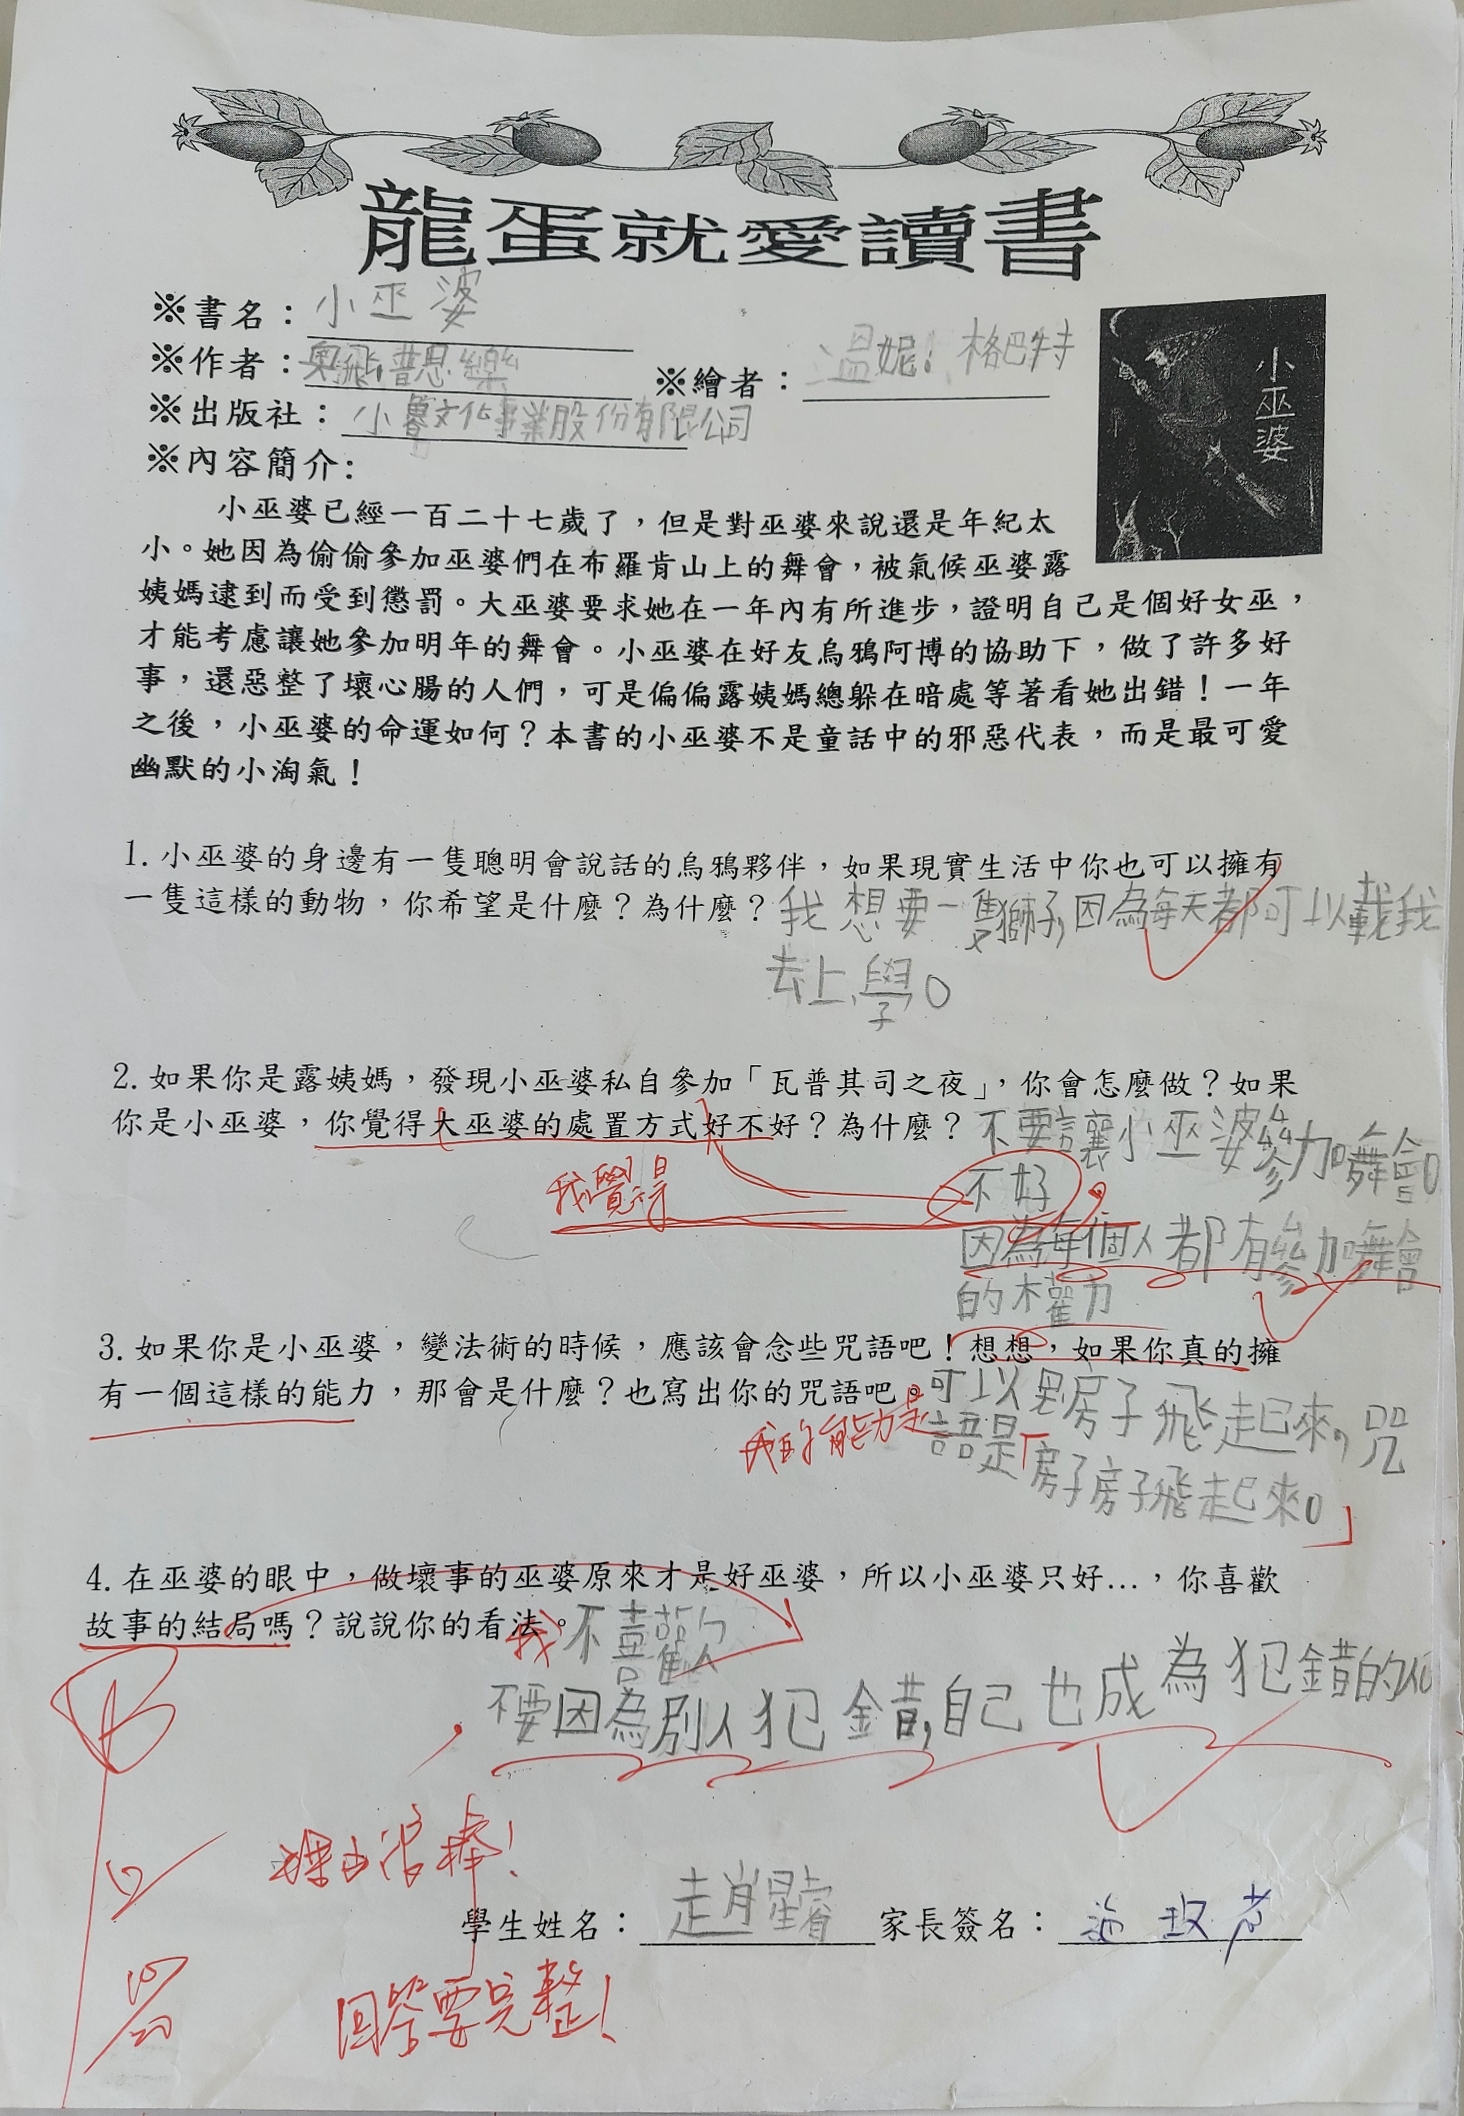 龍蛋就愛讀書
※書名：小巫婆
※作者：奧飛普思樂 ※繪者：溫妮！格巴特
※出版社：小魯文化事業股份有限公司
小巫婆
※內容簡介：
小巫婆已經一百二十七歲了，但是對巫婆來說還是年紀太
小。她因為偷偷參加巫婆們在布羅肯山上的舞會，被氣候巫婆露
姨媽逮到而受到懲罰。大巫婆要求她在一年內有所進步，證明自己是個好女巫，
才能考慮讓她參加明年的舞會。小巫婆在好友烏鴉阿博的協助下，做了許多好
事，還惡整了壞心腸的人們，可是偏偏露姨媽總躲在暗處等著看她出錯！一年
之後，小巫婆的命運如何？本書的小巫婆不是童話中的邪惡代表，而是最可愛
幽默的小淘氣！
1. 小巫婆的身邊有一隻聰明會說話的烏鴉夥伴，如果現實生活中你也可以擁有
一隻這樣的動物，你希望是什麼？為什麼？我想要一隻獅子，因為每天都可以載我
去上學。
2. 如果你是露姨媽，發現小巫婆私自參加「瓦普其司之夜」，你會怎麼做？如果
你是小巫婆，你覺得大巫婆的處置方式好不好？為什麼？不要讓小巫婆參加舞會。
我覺得 不好，
因為每個人都有參加舞會
的權力
3. 如果你是小巫婆，變法術的時候，應該會念些咒語吧！想想，如果你真的擁
有一個這樣的能力，那會是什麼？也寫出你的咒語吧。可以是房子飛起來，咒
我的能力是
語是「房子房子飛起來。」
4. 在巫婆的眼中，做壞事的巫婆原來才是好巫婆，所以小巫婆只好…，你喜歡
故事的結局嗎？說說你的看法。我不喜歡
，不要因為別人犯錯，自己也成為犯錯的
理由很棒！
學生姓名：趙星睿 家長簽名：
回答要完整！